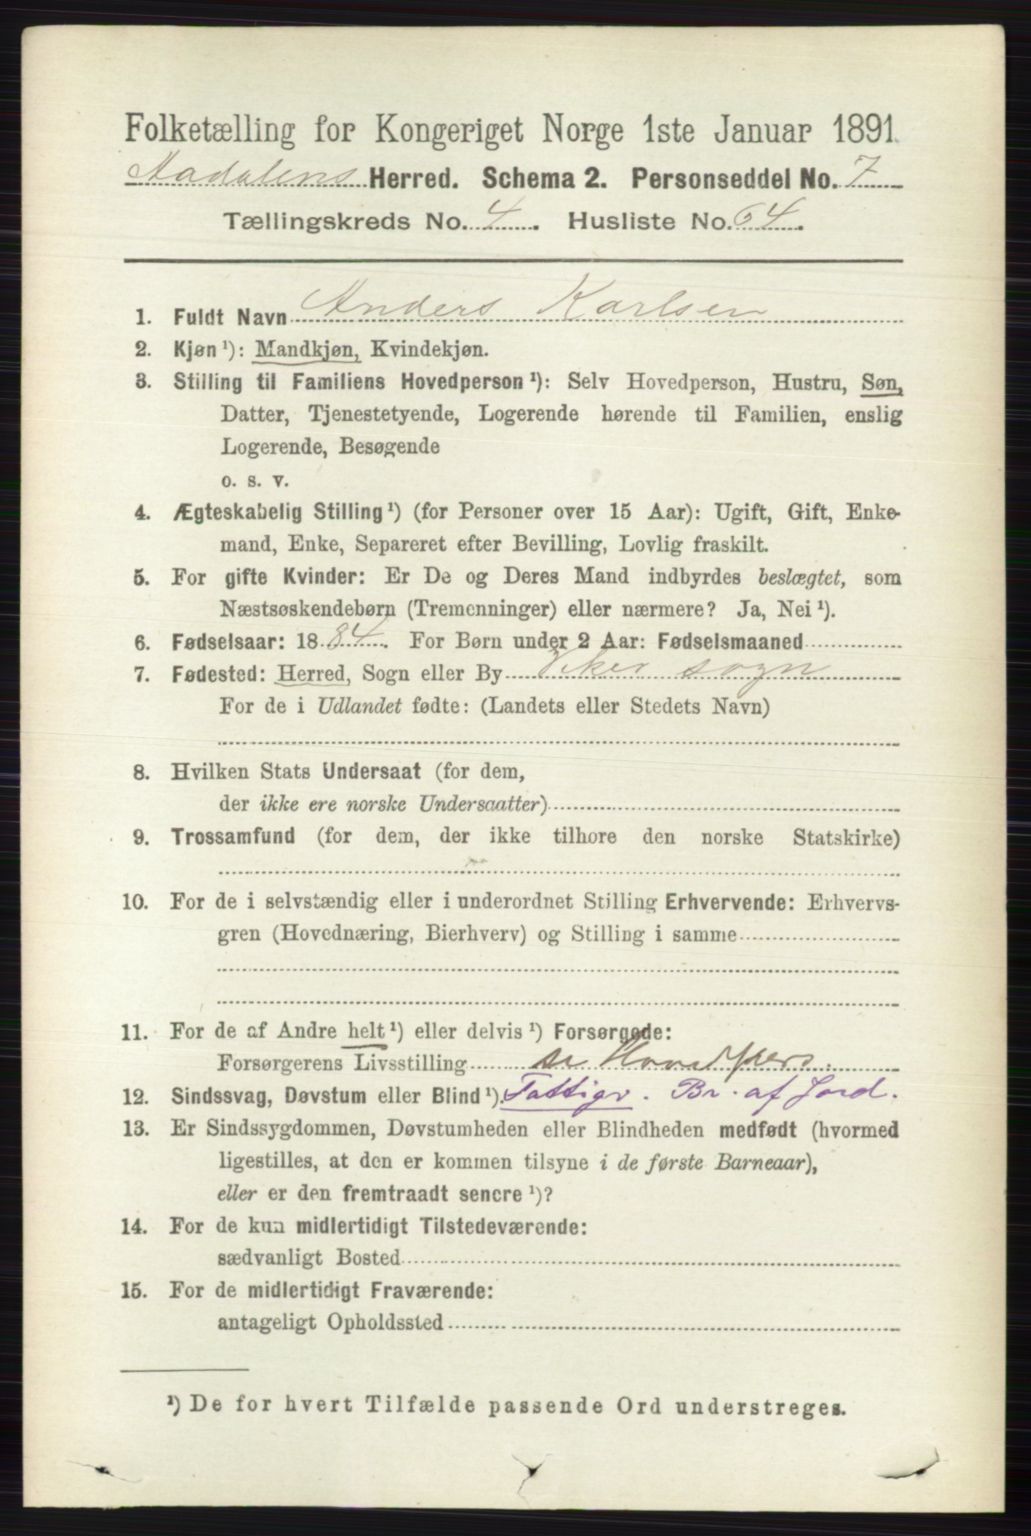 Folketælling for Kongeriget Norge 1ste Januar 1891.
Aadalens Herred. Schema 2. Personseddel No. 7
Tællingskreds No. 4. Husliste No. 64.
1. Fuldt Navn Anders Karlsen
2. Kjøn ¹): Mandkjøn, Kvindekjøn.
3. Stilling til Familiens Hovedperson ¹): Selv Hovedperson, Hustru, Søn,
Datter, Tjenestetyende, Logerende hørende til Familien, enslig
Logerende, Besøgende
o. s. v.
4. Ægteskabelig Stilling ¹) (for Personer over 15 Aar): Ugift, Gift, Enke-
mand, Enke, Separeret efter Bevilling, Lovlig fraskilt.
5. For gifte Kvinder: Er De og Deres Mand indbyrdes beslægtet, som
Næstsøskendebørn (Tremenninger) eller nærmere? Ja, Nei ¹).
6. Fødselsaar: 1884. For Børn under 2 Aar: Fødselsmaaned
7. Fødested: Herred, Sogn eller By Viker sogn
For de i Udlandet fødte: (Landets eller Stedets Navn)
8. Hvilken Stats Undersaat (for dem,
der ikke ere norske Undersaatter)
9. Trossamfund (for dem, der ikke tilhøre den norske Statskirke)
10. For de i selvstændig eller i underordnet Stilling Erhvervende: Erhvervs-
gren (Hovednæring, Bierhverv) og Stilling i samme
11. For de af Andre helt ¹) eller delvis ¹) Forsørgede:
Forsørgerens Livsstilling se Hovedpers.
12. Sindssvag, Døvstum eller Blind ¹). Fattigv. Br. af Jord.
13. Er Sindssygdommen, Døvstumheden eller Blindheden medfødt (hvormed
ligestilles, at den er kommen tilsyne i de første Barneaar),
eller er den fremtraadt senere ¹)?
14. For de kun midlertidigt Tilstedeværende:
sædvanligt Bosted
15. For de midlertidigt Fraværende:
antageligt Opholdssted
¹) De for hvert Tilfælde passende Ord understreges.